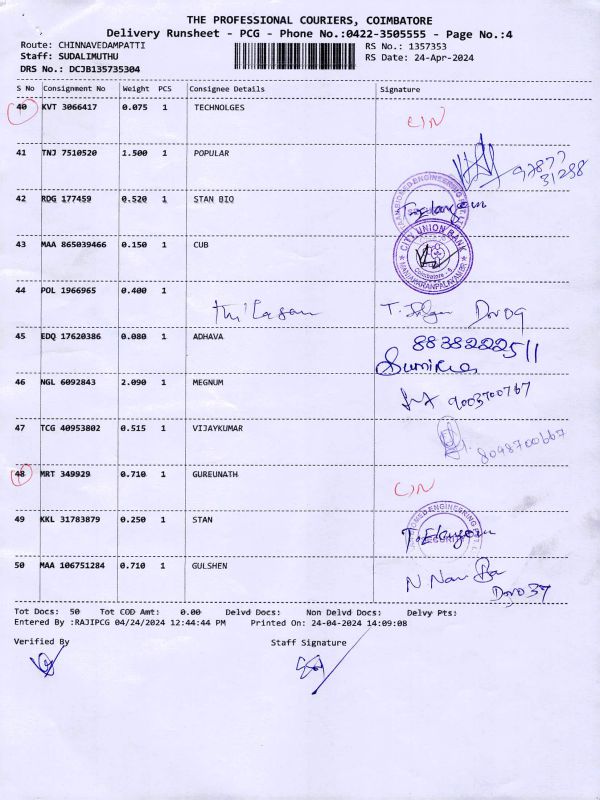 THE PROFESSIONAL COURIERS, COIMBATORE
Delivery Runsheet - PCG - Phone No.:0422-3505555 - Page No.:4
Route: CHINNAVEDAMPATTI RS No.: 1357353
Staff: SUDALIMUTHU RS Date: 24-Apr-2024
DRS No.: DCJB135735304
S No Consignment No Weight PCS Consignee Details Signature
40 KVT 3066417 0.075 1 TECHNOLGES
41 TNJ 7510520 1.500 1 POPULAR 97877
31288
42 RDG 177459 0.520 1 STAN BIQ T. Elangovan
43 MAA 865039466 0.150 1 CUB CITY UNION BANK
44 POL 1966965 0.400 1
45 EDQ 17620386 0.080 1 ADHAVA
46 NGL 6092843 2.090 1 MEGNUM 9003700767
47 TCG 40953802 0.515 1 VIJAYKUMAR 8098700667
48 MRT 349929 0.710 1 GUREUNATH
49 KKL 31783879 0.250 1 STAN T. Elangovan
50 MAA 106751284 0.710 1 GULSHEN
Tot Docs: 50 Tot COD Amt: 0.00 Delvd Docs: Non Delvd Docs: Delvy Pts:
Entered By :RAJIPCG 04/24/2024 12:44:44 PM Printed On: 24-04-2024 14:09:08
Verified By Staff Signature